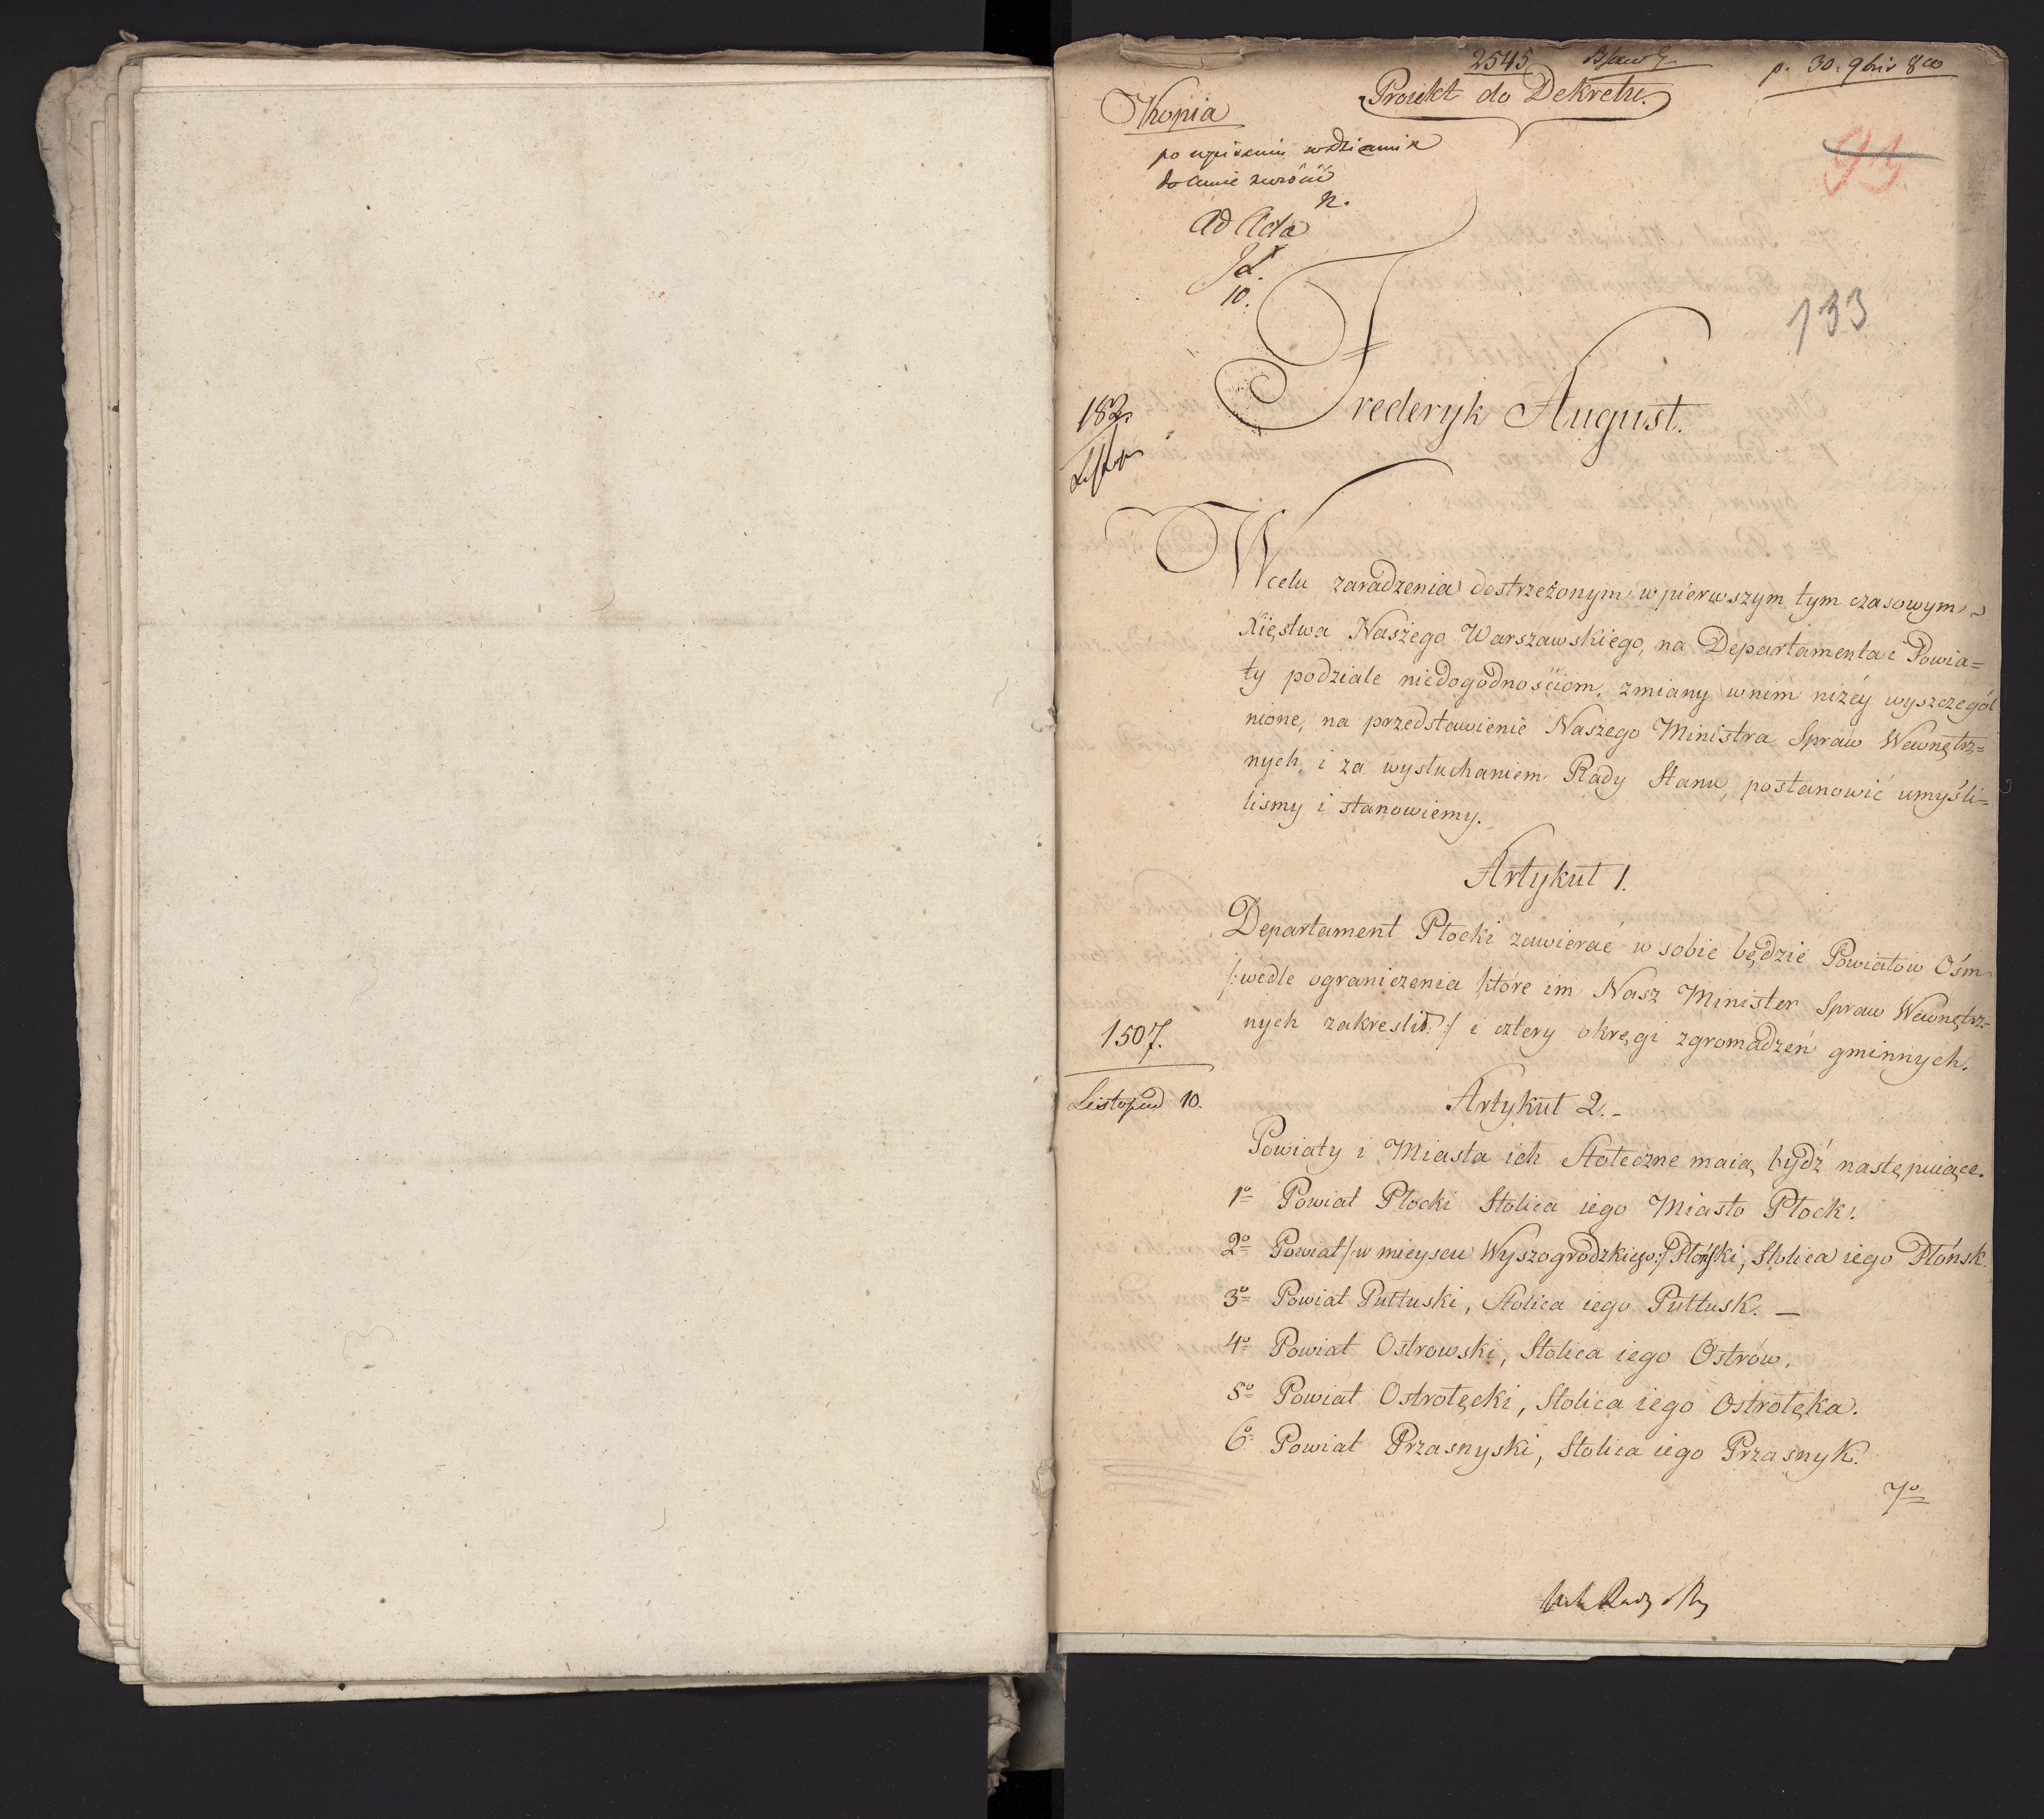 2545
p. 30. 9bris 800
Proiekt do Dekretu.
Kopia
po wpisaniu w dziennik
do mnie zwrócić
93
Ad Acta
10.
133
Fryderyk August.
182
Listop
W celu zaradzenia dostrzeżonym w pierwszym tym czasowym
Xięstwa Naszego Warszawskiego, na Departamenta i Powia=
ty podziale niedogodnościom, zmiany w nim niżéy wyszczegól
nione, na przedstawienie Naszego Ministra Spraw Wewnętrz=
nych, i za wysłuchaniem Rady Stanu, postanowić umyśli=
lismy i stanowiemy.
Artykuł 1.
Departament Płocki zawierać w sobie będzie Powiatów Ośm
/:wedle ograniczenia które im Nasz Minister Spraw Wewnętrz=
nych zakreslił:/ i cztery okręgi zgromadzeń gminnych.
1507.
Listopad 10.
Artykuł 2.-
Powiaty i Miasta ich Stołeczne maią bydź następuiące.
1o Powiat Płocki Stolica iego Miasto Płock.
2o Powiat /:w mieyscu Wyszogrodzkiego:/ Płoński, Stolica iego Płońsk.
3o Powiat Pułtuski, Stolica iego Pułtusk. —
4o Powiat Ostrowski, Stolica iego Ostrów.
5o Powiat Ostrołęcki, Stolica iego Ostrołęka.
6o Powiat Przasnyski, Stolica iego Przasnyk.
7o